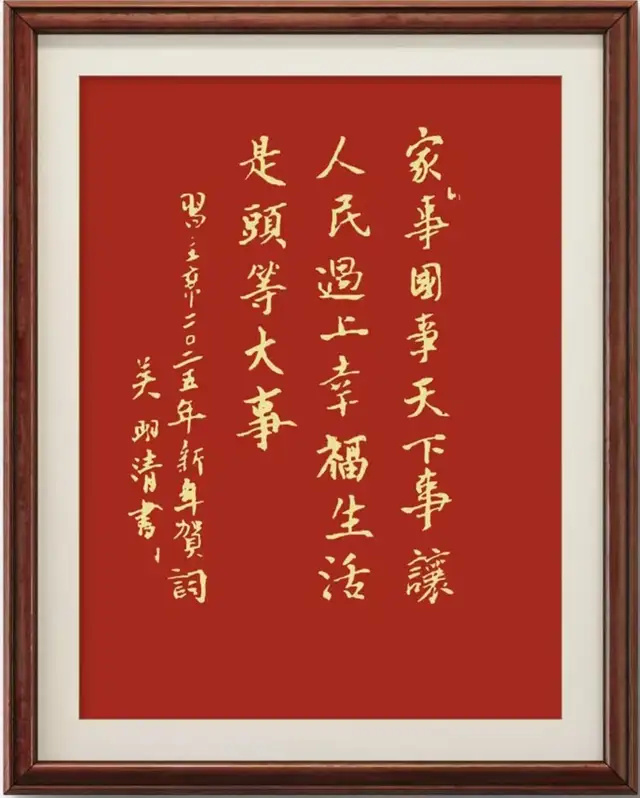 家事國事天下事讓
人民過上幸福生活
是頭等大事
習主席二〇二五年新年賀詞
明清書